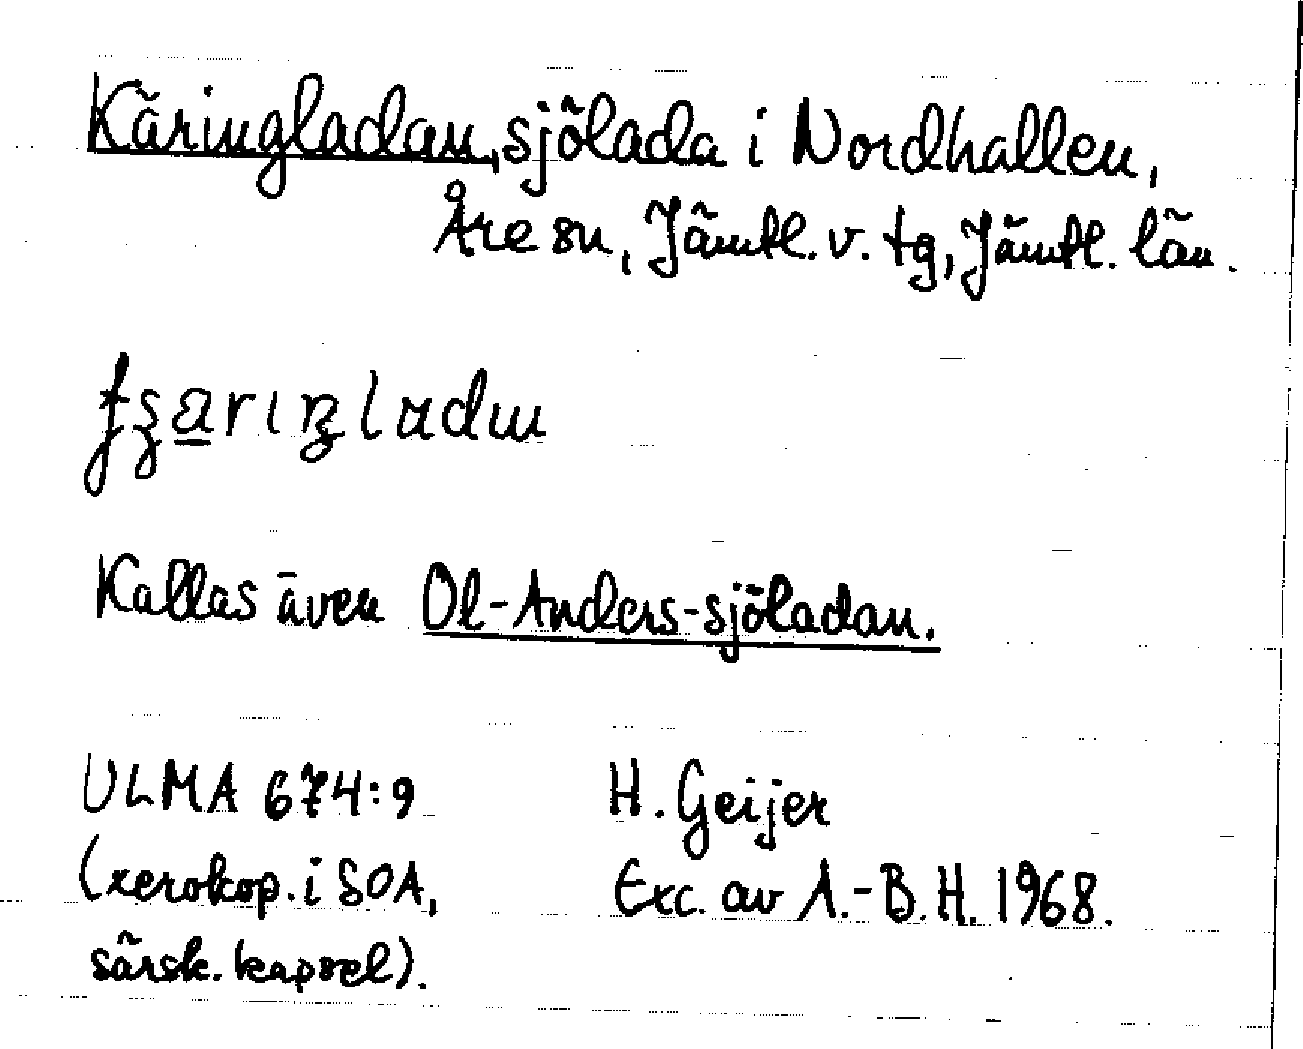 Käringladan, sjölada i Nordhallen,
Åre sn, Jämtl. v. tg, Jämtl. län.
Kallas även Ol-Anders-sjöladan.
ULMA 674:9 H. Geijer
(xerokop. i SOA, Exc. av A.-B.H. 1968.
särsk. kapsel).